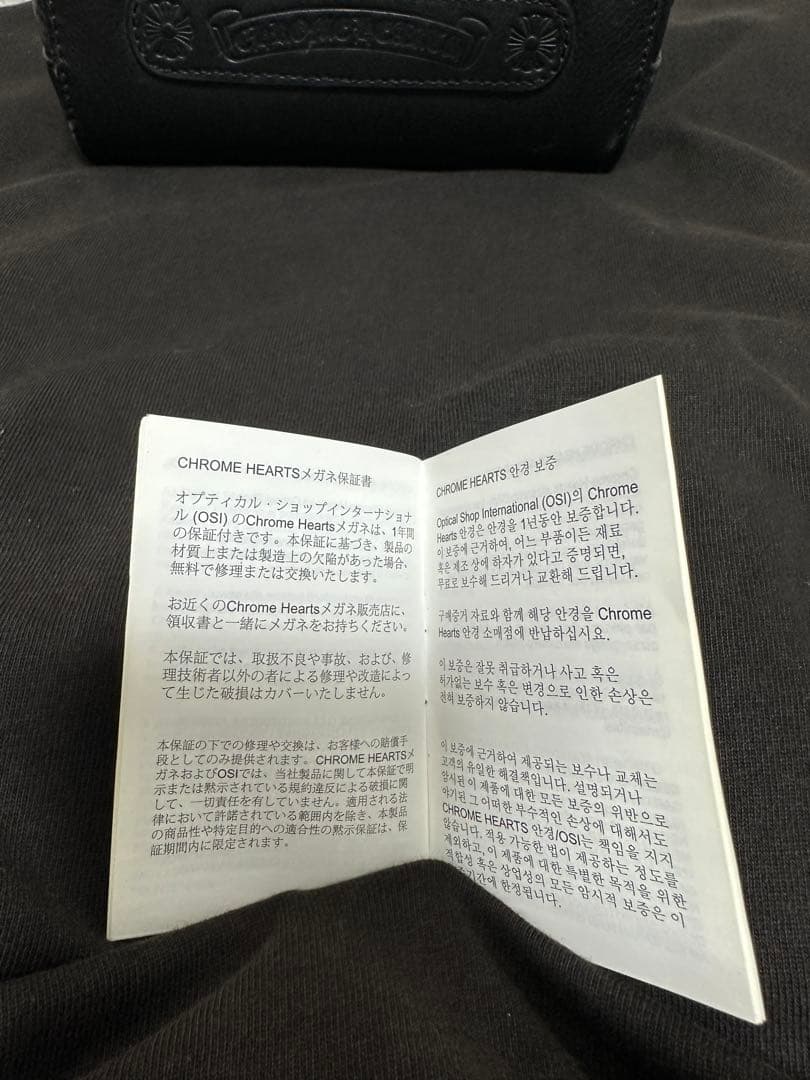 CHROME HEARTSメガネ保証書
オプティカル・ショップインターナショナ
ル (OSI) のChrome Heartsメガネは、1年間
の保証付きです。本保証に基づき、製品の
材質上または製造上の欠陥があった場合、
無料で修理または交換いたします。
お近くのChrome Heartsメガネ販売店に、
領収書と一緒にメガネをお持ちください。
本保証では、取扱不良や事故、および、修
理技術者以外の者による修理や改造によっ
て生じた破損はカバーいたしません。
本保証の下での修理や交換は、お客様への賠償手
段としてのみ提供されます。CHROME HEARTSメ
ガネおよびOSIでは、当社製品に関して本保証で明
示または黙示されている規約違反による破損に関
して、一切責任を有していません。適用される法
律において許諾されている範囲内を除き、本製品
の商品性や特定目的への適合性の黙示保証は、保
証期間内に限定されます。
CHROME HEARTS 안경 보증
Optical Shop International (OSI)의 Chrome
Hearts 안경은 안경을 1년동안 보증합니다.
이 보증에 근거하여, 어느 부품이든 재료
혹은 제조 상에 하자가 있다고 증명되면,
무료로 보수해 드리거나 교환해 드립니다.
구매증거 자료와 함께 해당 안경을 Chrome
Hearts 안경 소매점에 반납하십시요.
이 보증은 잘못 취급하거나 사고 혹은
허가없는 보수 혹은 변경으로 인한 손상은
전혀 보증하지 않습니다.
이 보증에 근거하여 제공되는 보수나 교체는
고객의 유일한 해결책입니다. 설명되거나
암시된 이 제품에 대한 모든 보증의 위반으로
야기된 그 어떠한 부수적인 손상에 대해서도
CHROME HEARTS 안경/OSI는 책임을 지지
않습니다. 적용 가능한 법이 제공하는 정도를
제외하고, 이 제품에 대한 특별한 목적을 위한
적합성 혹은 상업성의 모든 암시적 보증은 이
한정됩니다.